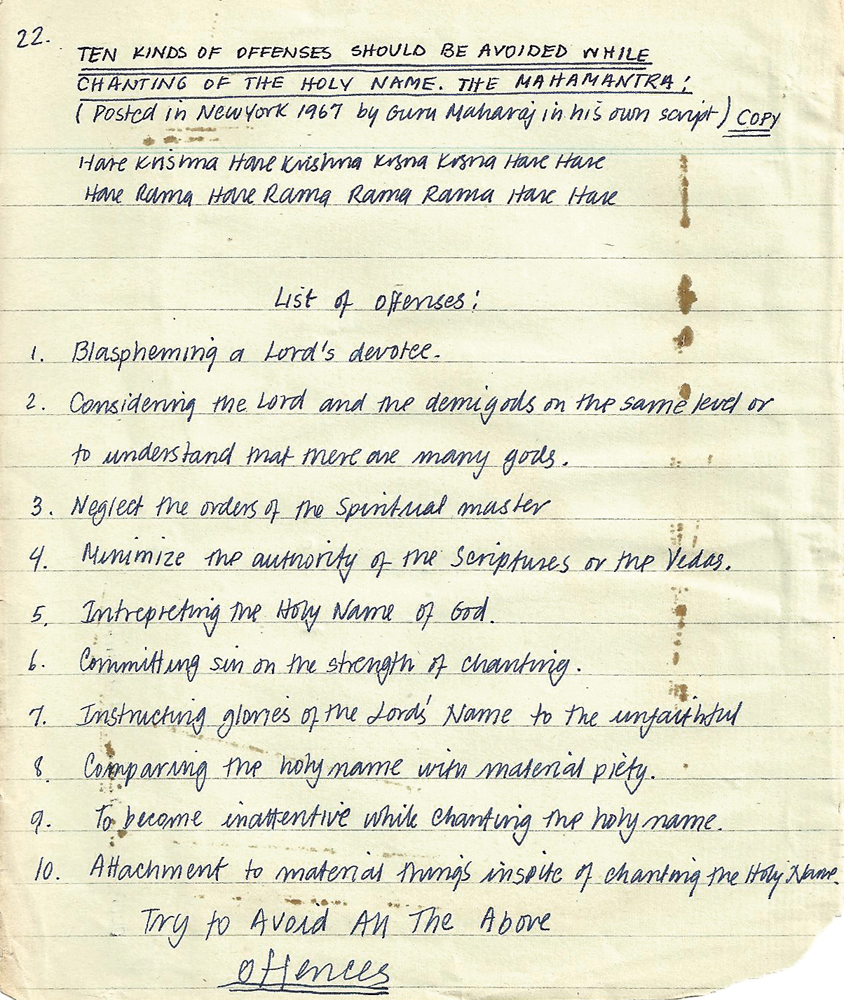 22.
TEN KINDS OF OFFENSES SHOULD BE AVOIDED WHILE
CHANTING OF THE HOLY NAME. THE MAHAMANTRA:
(Posted in NewYork 1967 by Guru Maharaj in his own script) COPY
Hare Krishna Hare Krishna Krsna Krsna Hare Hare
Hare Rama Hare Rama Rama Rama Hare Hare
List of offenses:
1. Blaspheming a Lord's devotee.
2. Considering the Lord and the demigods on the same level or
to understand that there are many gods.
3. Neglect the orders of the Spiritual master
4. Minimize the authority of the Scriptures or the Vedas.
5. Intrepreting the Holy Name of God.
6. Committing sin on the strength of chanting.
7. Instructing glories of the Lords' Name to the unfaithful
8. Comparing the holy name with material piety.
9. To become inattentive while chanting the holy name.
10. Attachment to material things inspite of chanting the Holy Name.
Try to Avoid All The Above
Offences